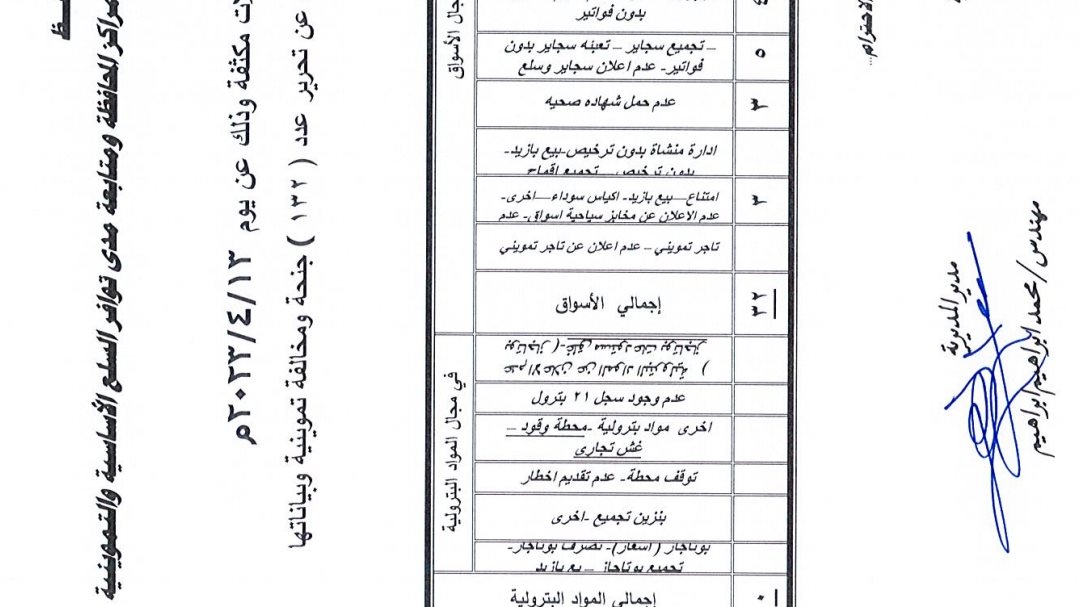 مراكز المحافظة ومتابعة مدى توافر السلع الأساسية والتموينية
لات مكثفة وذلك عن يوم ٢٠٢٣/٤/١٣م
عن تحرير عدد ( ١٣٢ ) جنحة ومخالفة تموينية وبياناتها
جال الأسواق
بدون فواتير
٤
– تجميع سجاير – تعبئه سجاير بدون
فواتير- عدم اعلان سجاير وسلع
٥
عدم حمل شهاده صحيه
٣
ادارة منشاة بدون ترخيص-بيع بازيد-
بدون ترخيص – تجميع اقماح
امتناع—بيع بازيد- اكياس سوداء—اخرى-
عدم الاعلان عن مخابز سياحية اسواق- عدم
٣
تاجر تمويني – عدم اعلان عن تاجر تمويني
إجمالي الأسواق
٣٢
في مجال المواد البترولية
عدم الاعلان عن المواد البترولية (
بوتاجاز ) -غلق مستودعات بوتاجاز
عدم وجود سجل ٢١ بترول
اخرى مواد بترولية -محطة وقود –
غش تجارى
توقف محطة- عدم تقديم اخطار
بنزين تجميع -اخرى
بوتاجاز ( اسعار)- تصرف بوتاجاز-
تجميع بوتاجاز – بيع بازيد
إجمالي المواد البترولية
الاحترام...
مدير المديرية
مهندس/محمد ابراهيم ابراهيم